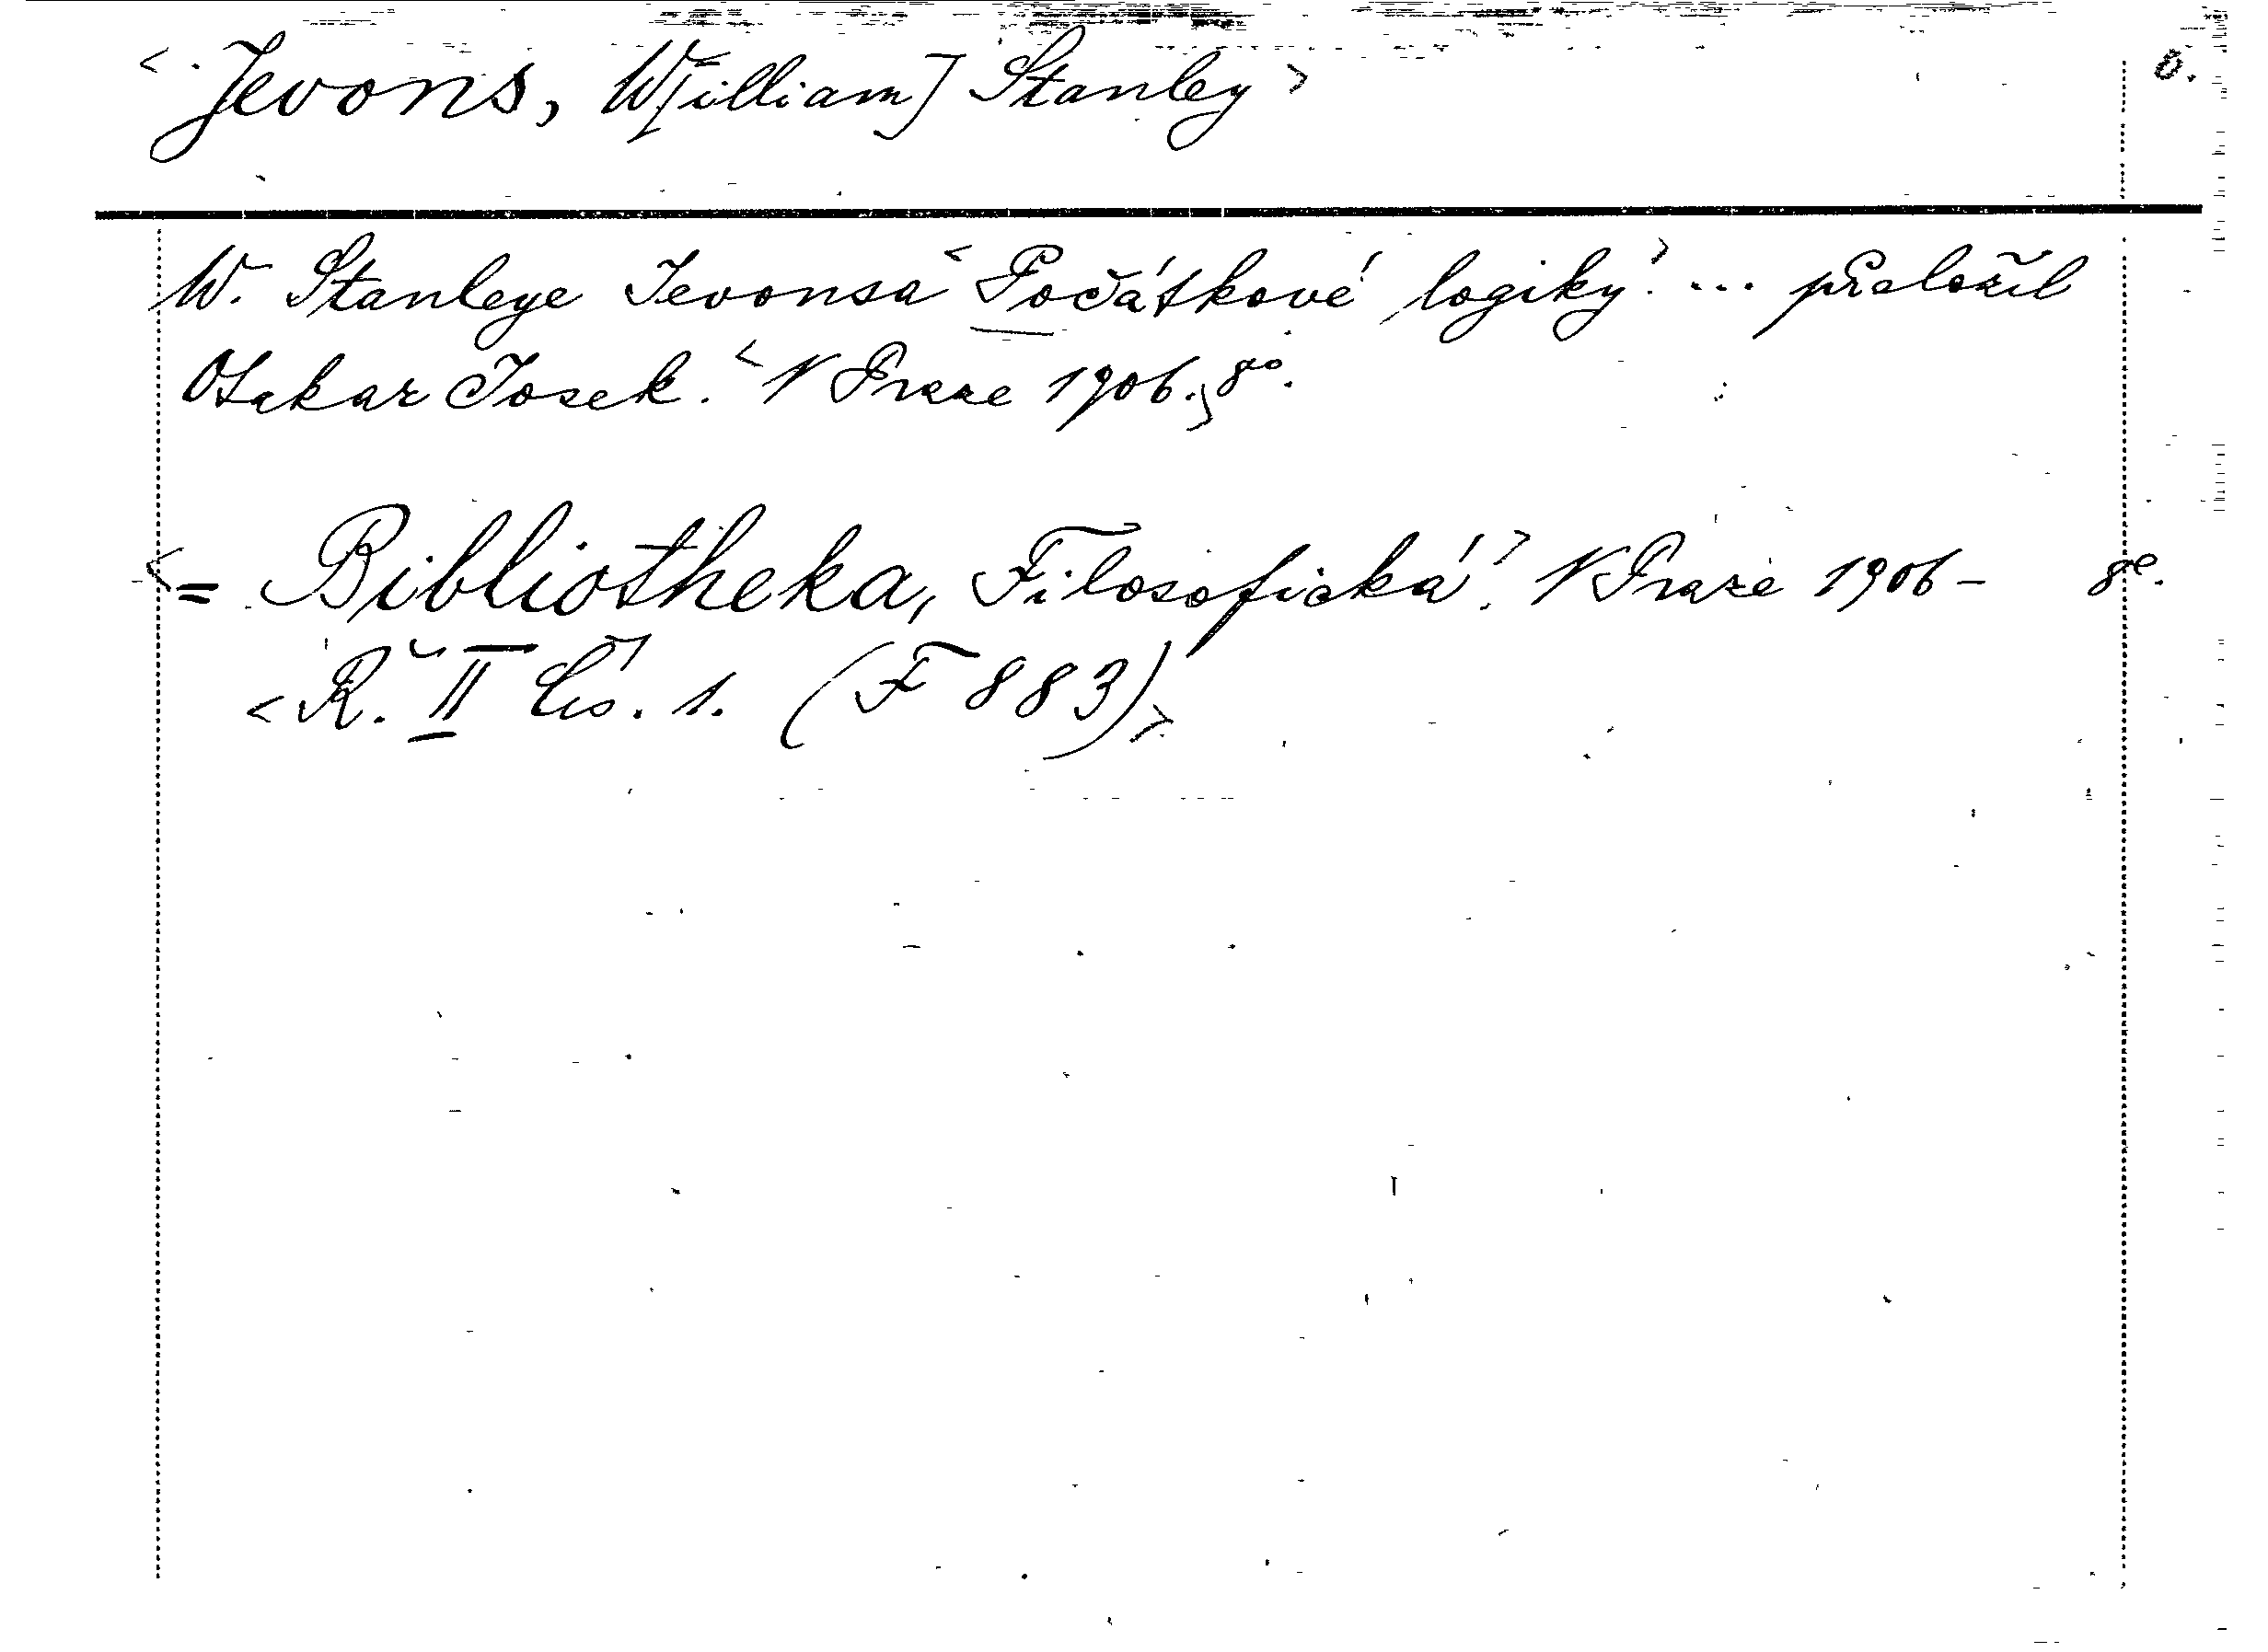 <Jevons, W[illiam] Stanley> ö.
W. Stanleye Jevonsa <Počátkové logiky.> ... přeložil
Otakar Josek. <V Praze 1906.> 8o.
<= Bibliotheka, Filosofická.> V Praze 1906- 8o.
<Ř. II Čís. 1. (F 883)>